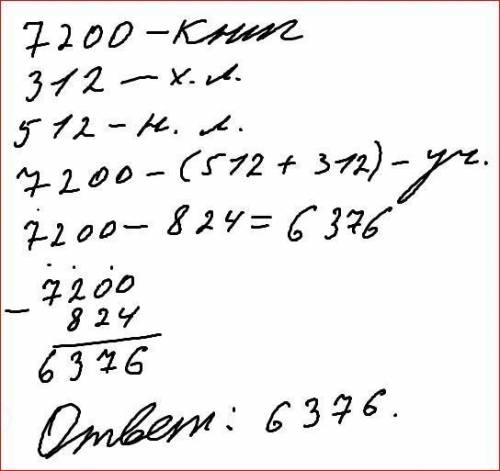 7200 – книг
312 – х. л.
512 – н. л.
7200 – (512 + 312) – уч.
7200 – 824 = 6376
7200
– 824
6376
Ответ: 6376.